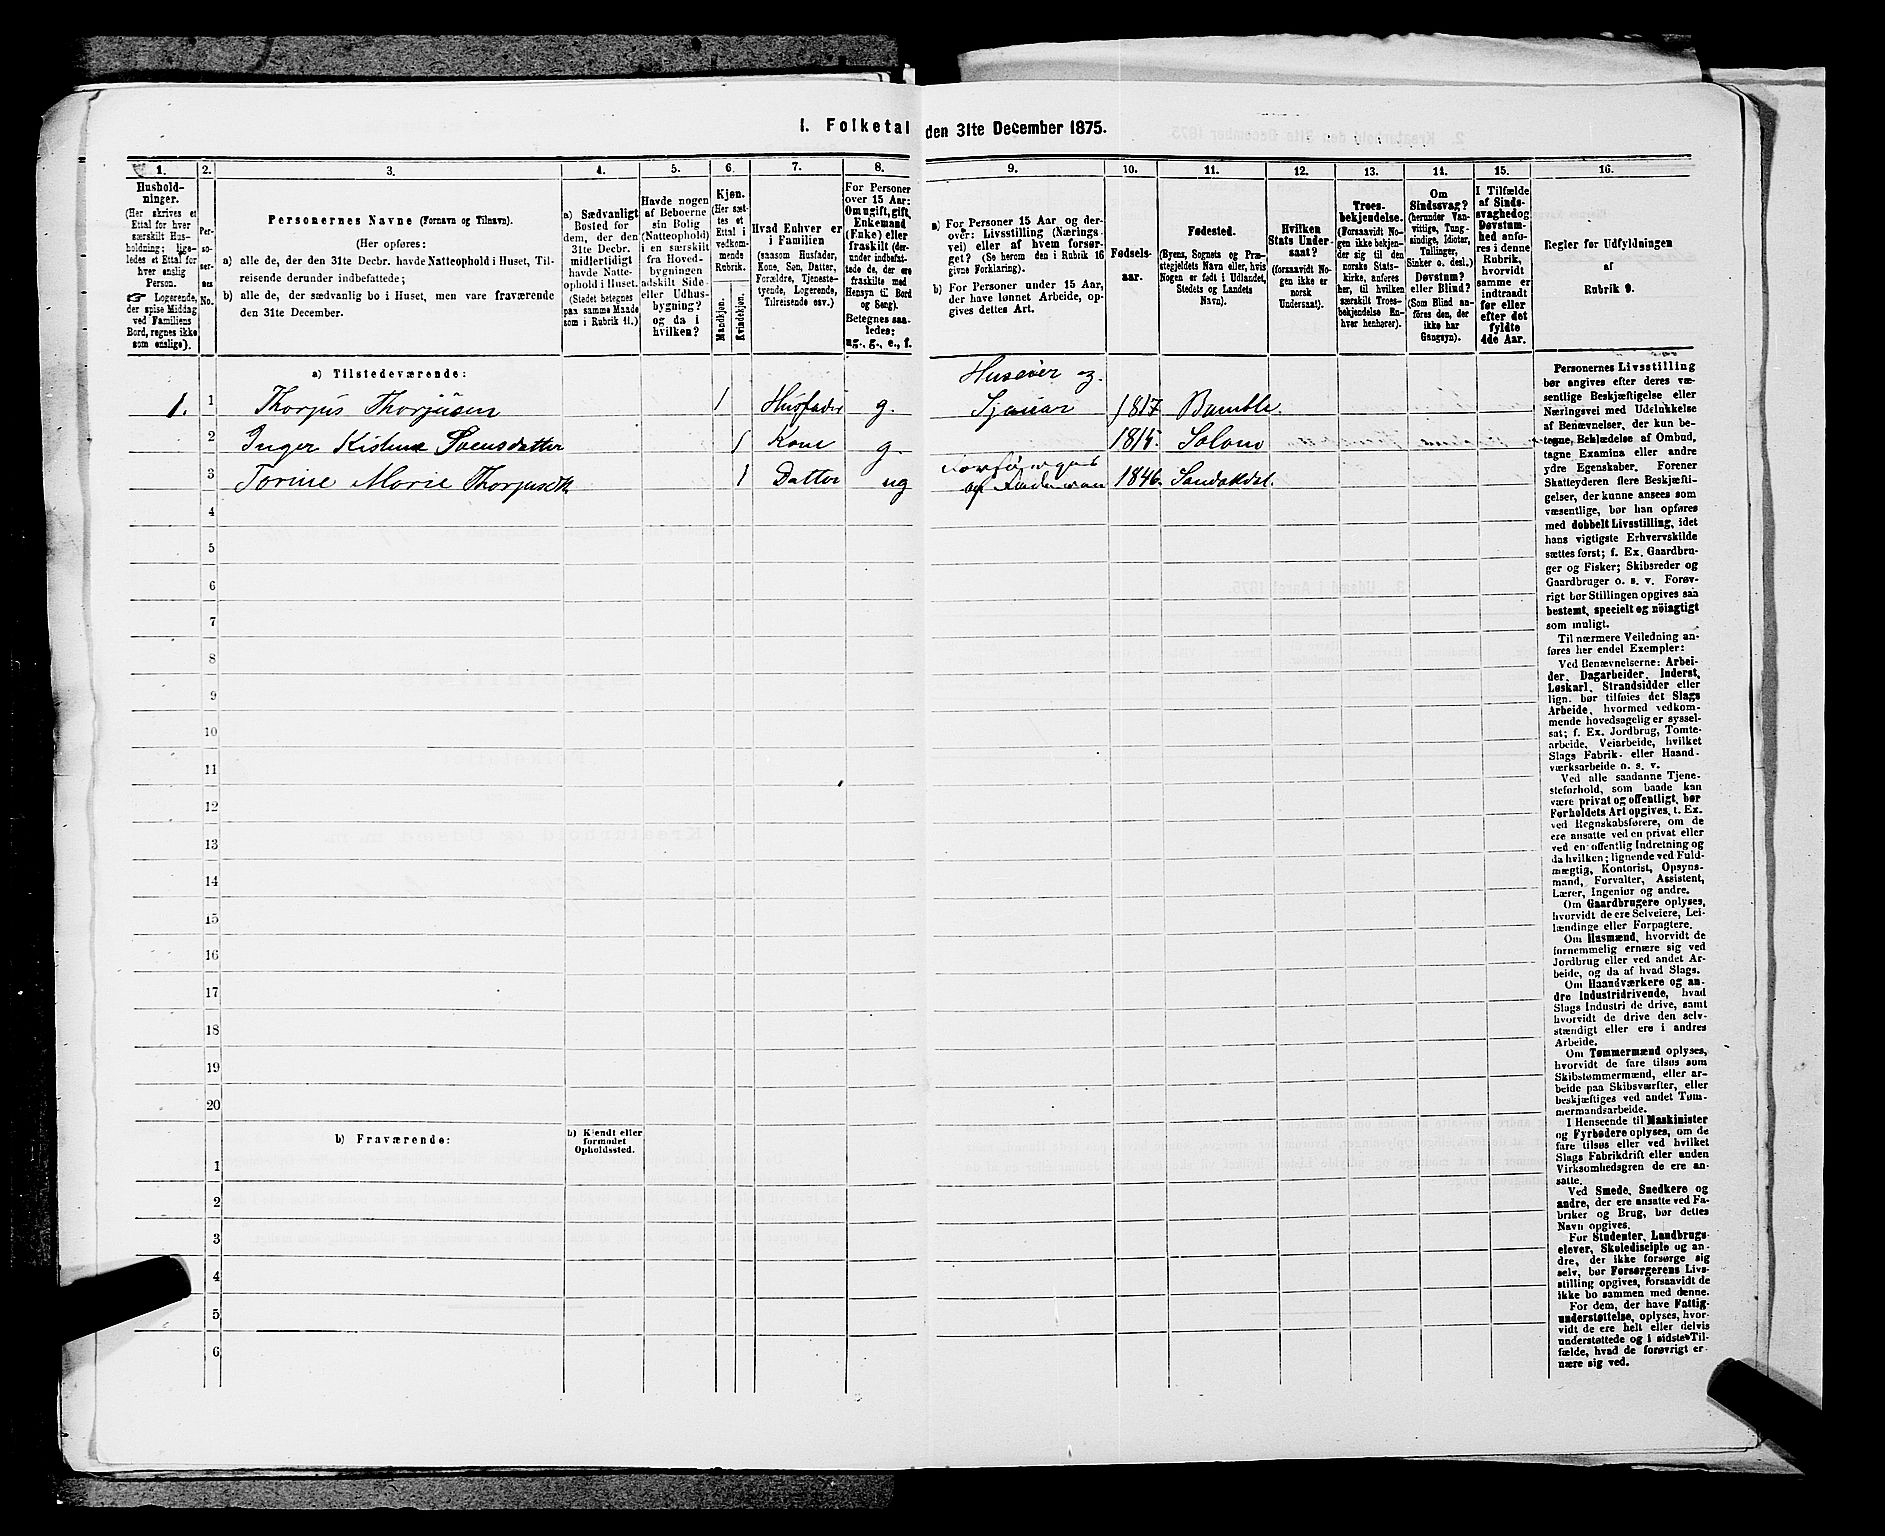 1. Folketal den 31te December 1875.
1. 2. 3. 4. 5. 6. 7. 8. 9. 10. 11. 12. 13. 14. 15. 16.
Hushold-
ninger.
(Her skrives et
Ettal for hver
særskilt Hus-
holdning; lige-
ledes et Ettal for
hver enslig
Person.
☞ Logerende,
der spise Middag
ved Familiens
Bord, regnes ikke
som enslige).
Per-
so-
ner-
nes
No.
Personernes Navne (Fornavn og Tilnavn).
(Her opføres:
a) alle de, der den 31te Decbr. havde Natteophold i Huset, Til-
reisende derunder indbefattede;
b) alle de, der sædvanlig bo i Huset, men vare fraværende
den 31te December.
a) Sædvanligt
Bosted for
dem, der den
31te Decbr.
midlertidigt
havde Natte-
ophold i Huset.
(Stedet betegnes
paa samme Maade
som i Rubrik 11.)
Havde nogen
af Beboerne
sin Bolig
(Natteophold)
i en særskilt
fra Hoved-
bygningen
adskilt Side-
eller Udhus-
bygning?
og da i
hvilken?
Kjøn.
(Her sæt-
tes et
Ettal i
vedkom-
mende
Rubrik.
Mandkjøn.
Kvindekjøn.
Hvad Enhver er
i Familien
(saasom Husfader,
Kone, Søn, Datter,
Forældre, Tjeneste-
tyende, Logerende,
Tilreisende osv.)
For Personer
over 15 Aar:
Om ugift, gift,
Enkemand
(Enke) eller
fraskilt (der-
under indbefat-
tede de, der ere
fraskilte med
Hensyn til Bord
og Seng).
Betegnes saa-
ledes:
ug., g., e., f.
a) For Personer 15 Aar og der-
over: Livsstilling (Nærings-
vei) eller af hvem forsør-
get? (Se herom den i Rubrik 16
givne Forklaring).
b) For Personer under 15 Aar,
der have lønnet Arbeide, op-
gives dettes Art.
Fødsels-
aar.
Fødested.
(Byens, Sognets og Præ-
stegjeldets Navn eller, hvis
Nogen er født i Udlandet,
Stedets og Landets
Navn).
Hvilken
Stats Under-
saat?
(forsaavidt No-
gen ikke er
norsk
Undersaat).
Troes-
bekjendelse.
(Forsaavidt No-
gen ikke bekjen-
der sig til den
norske Stats-
kirke, anføres
her, til hvilken
særskilt Troes-
bekjendelse En-
hver henhører).
Om
Sindssvag?
(herunder Van-
vittige, Tung-
sindige, Idioter,
Tullinger,
Sinker o. desl.)
Døvstum?
eller Blind?
(Som Blind an-
føres den, der
ikke har
Gangsyn).
I Tilfælde
af Sinds-
svaghed og
Døvstum-
hed anfø-
res i denne
Rubrik,
hvorvidt
samme er
indtraadt
før eller
efter det
fyldte
4de Aar.
Regler før Udfyldningen
af
Rubrik 9.
a) Tilstedeværende:
1. 1 Thorjus Thorjusen 1 Husfader g. Huseier og Sjouer 1817 Bamble.
2 Inger Kistine Svensdatter 1 Kone g. 1815 Solom
3 Torine Marie Thorjusdtr 1 Datter ug Forsørges af Faderen 1846. Sandøkdal.
4
5
6
7
8
9
10
11
12
13
14
15
16
17
18
19
20
b) Fraværende:
b) Kjendt eller
formodet
Opholdssted.
1
2
3
4
5
6
Personernes Livsstilling
bør angives efter deres væ-
sentlige Beskjæftigelse eller
Næringsvei med Udelukkelse
af Benævnelser, der kun be-
tegne Beklædelse af Ombud,
tagne Examina eller andre
ydre Egenskaber. Forener
Skatteyderen flere Beskjæfti-
gelser, der kunne ansees som
væsentlige, bør han opføres
med dobbelt Livsstilling, idet
hans vigtigste Erhvervskilde
sættes først; f. Ex. Gaardbru-
ger og Fisker; Skibsreder og
Gaardbruger o. s. v. Forøv-
rigt bør Stillingen opgives saa
bestemt, specielt og nöiagtigt
som muligt.
Til nærmere Veiledning an-
føres her endel Exempler:
Ved Benævnelserne: Arbei-
der, Dagarbeider, Inderst,
Løskarl, Strandsidder eller
lign. bør tilføies det Slags
Arbeide, hvormed vedkom-
mende hovedsagelig er syssel-
sat; f. Ex. Jordbrug, Tomte-
arbeide, Veiarbeide, hvilket
Slags Fabrik- eller Haand-
værksarbeide o. s. v.
Ved alle saadanne Tjene-
steforhold, som baade kan
være privat og offentligt, bør
Forholdets Art opgives, f. Ex.
ved Regnskabsførere, om de
ere ansatte ved en privat eller
ved en offentlig Indretning og
da hvilken; lignende ved Fuld-
mægtig, Kontorist, Opsyns-
mand, Forvalter, Assistent,
Lærer, Ingeniør og andre.
Om Gaardbrugere oplyses,
hvorvidt de ere Selveiere, Lei-
lændinge eller Forpagtere.
Om Husmænd, hvorvidt de
fornemmelig ernære sig ved
Jordbrug eller ved andet Ar-
beide, og da af hvad Slags.
Om Haandværkere og an-
dre Industridrivende, hvad
Slags Industri de drive, samt
hvorvidt de drive den selv-
stændigt eller ere i andres
Arbeide.
Om Tømmermænd oplyses,
hvorvidt de fare tilsøs som
Skibstømmermænd, eller ar-
beide paa Skibsværfter, eller
beskjæftiges ved andet Tøm-
mermandsarbeide.
I Henseende til Maskinister
og Fyrbødere oplyses, om de
fare tilsøs eller ved hvilket
Slags Fabrikdrift eller anden
Virksomhedsgren de ere an-
satte.
Ved Smede, Snedkere og
andre, der ere ansatte ved Fa-
briker og Brug, bør dettes
Navn opgives.
For Studenter, Landbrugs-
elever, Skoledisciple og an-
dre, der ikke forsørge sig
selv, bør Forsørgerens Livs-
stilling opgives, forsaavidt de
ikke bo sammen med denne.
For dem, der have Fattig-
understøttelse, oplyses, hvor-
vidt de ere helt eller delvis
understøttede og i sidste Til-
fælde, hvad de forøvrigt er-
nære sig ved.